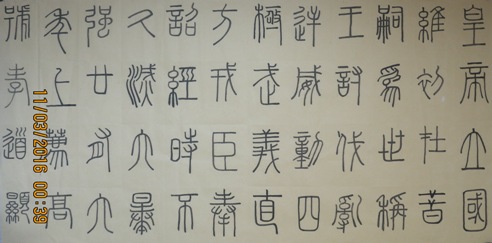 皇帝立國
維初在昔
嗣爲世稱
王討伐亂
逆威動四
極武義直
方戎臣奉
詔經時不
久滅六暴
强廿有六
年上薦高
號孝道顯
11/03/2016 00:39